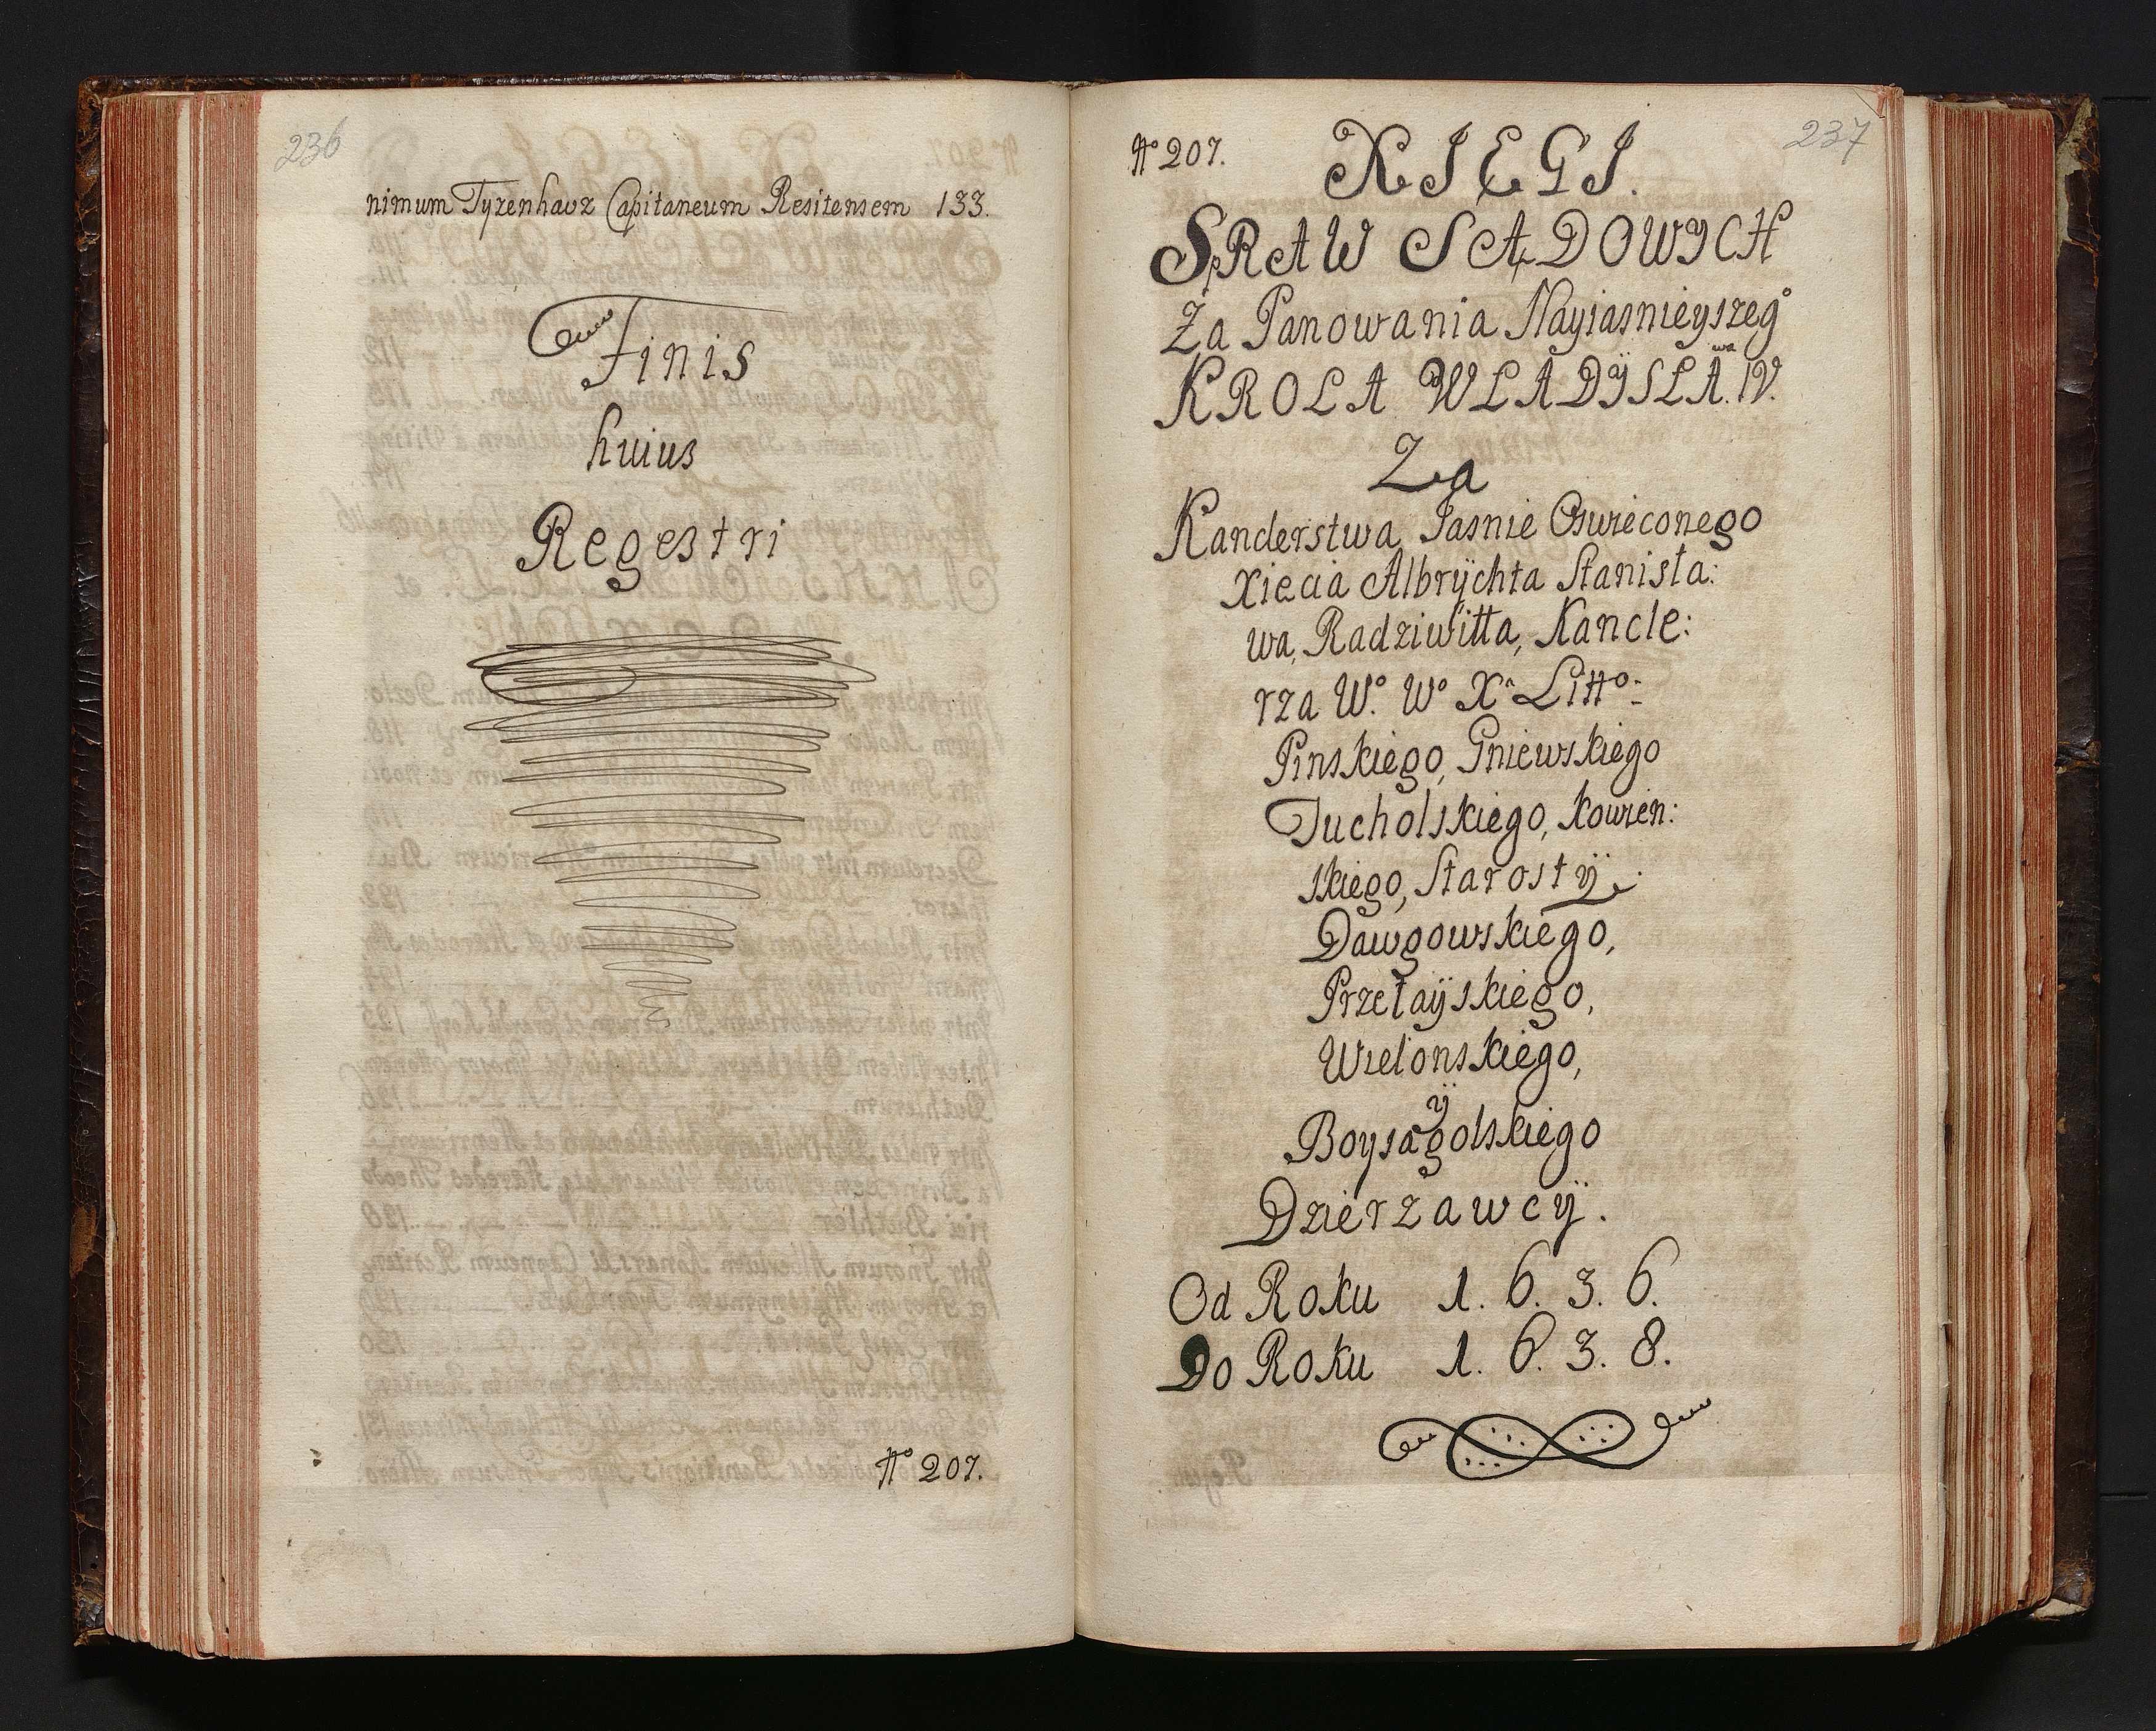 236
nimum Tyzenhauz Capitaneum Resitensem 133.
Finis
huius
Regestri
No 207.
No 207.
237
XIĘGI.
SPRAW SĄDOWYCH
Za Panowania Nayiasnieyszego
KROLA WLADYSLAwa. IV.
Za
Kanclerstwa Jasnie Oswieconego
Xiecia Albrÿchta Stanisła:
wa, Radziwiłła, Kancle:
rza Wo. Wo Xa Litto:
Pinskiego, Gniewskiego
Tucholskiego, Kowien:
skiego, Starostÿ.
Dawgowskiego,
Przełaÿskiego,
Wielonskiego,
ÿ
Boysagolskiego
Dzierzawcÿ.
Od Roku 1. 6. 3. 6.
Do Roku 1. 6. 3. 8.